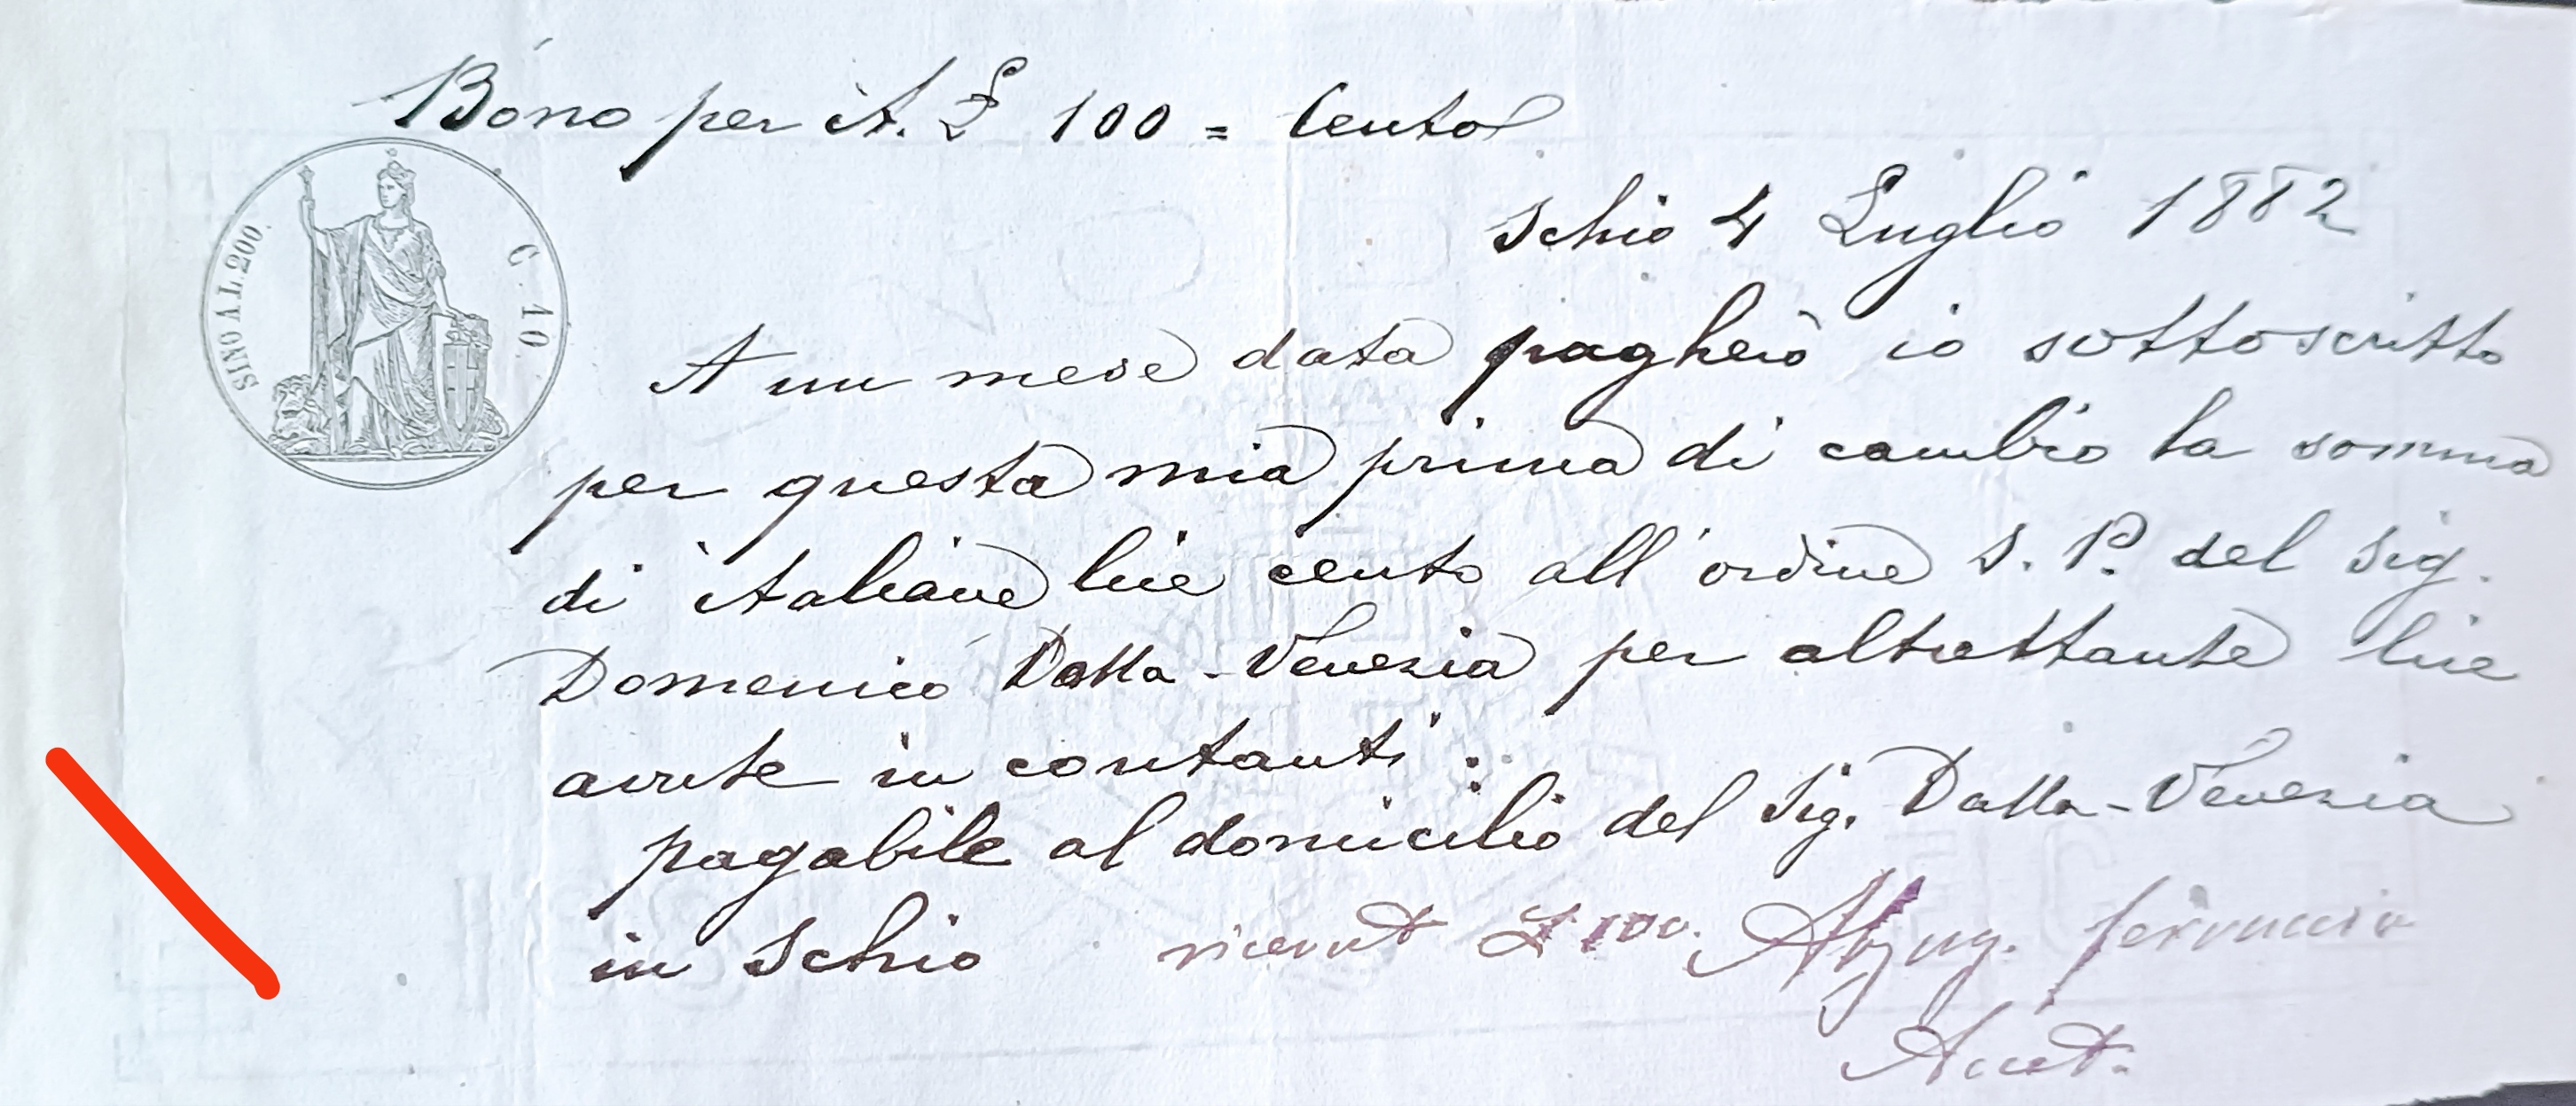 Bono per it. £ 100 = Cento
SINO A L. 200.
C. 10.
Schio 4 Luglio 1882
A un mese data pagherò io sottoscritto
per questa mia prima di cambio la somma
di italiane lire cento all'ordine S. P. del Sig.
Domenico Dalla-Venezia per altrettante lire
avute in contanti :
pagabile al domicilio del Sig. Dalla-Venezia
in Schio
£ 100.